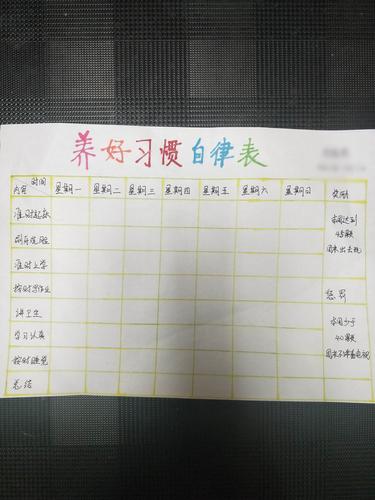 养好习惯自律表
时间
内容
星期一 星期二 星期三 星期四 星期五 星期六 星期日 奖励
准时起床
刷牙洗脸
准时上学
按时写作业
讲卫生
学习认真
按时睡觉
总结
本周达到
45颗
周末出去玩
惩罚
本周少于
40颗
周末不准看电视